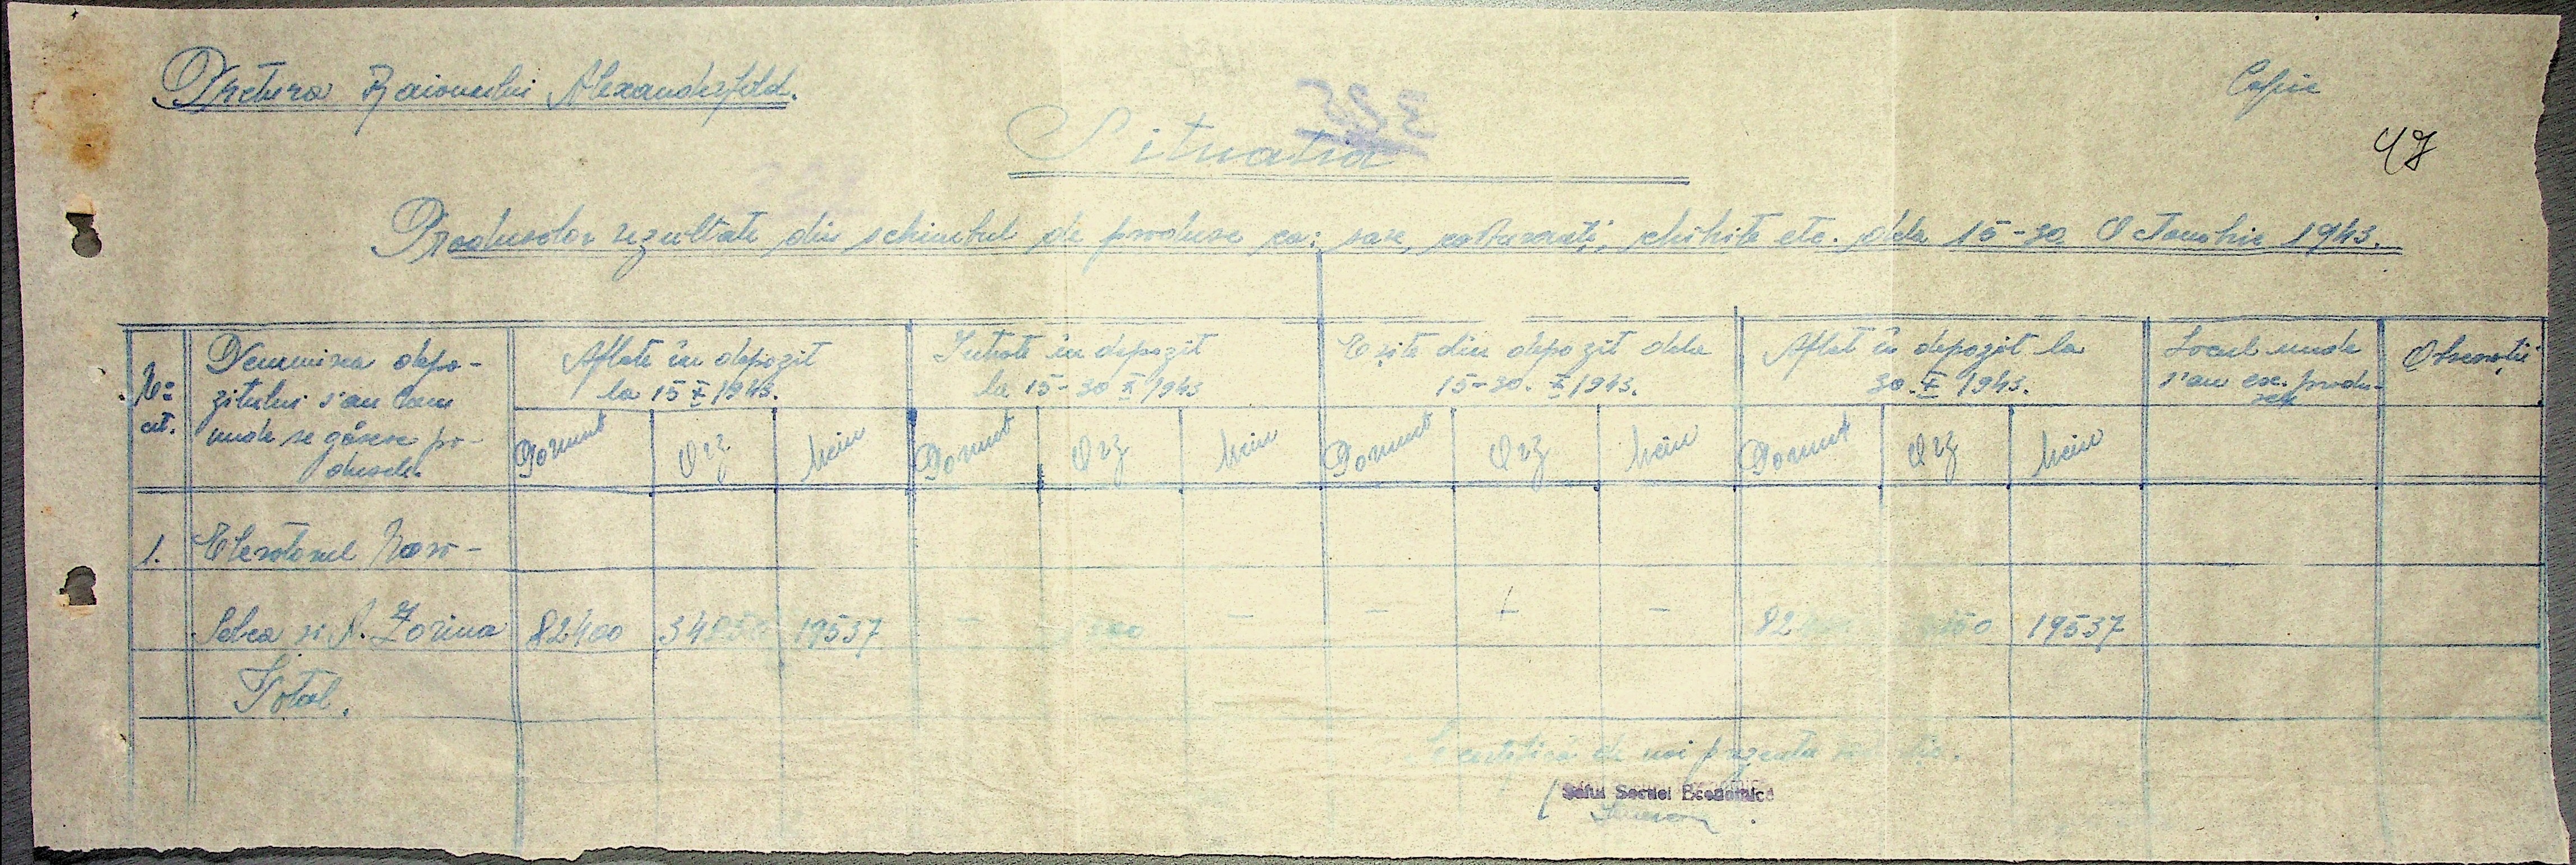 Pretura Raionului Alexanderfeld.
Copie
47
325
Situatia
Produselor rezultate din schimbul de produse ca: sare, chibrite etc. dela 15-30 Octombrie 1943.
No. crt.
Denumirea depo-
zitului s'au lanu
unde se găsesc pro-
dusele.
Aflate în depozit
la 15 X 1943.
Intrate în depozit
la 15-30 X 1943
Eșite din depozit dela
15-30. X 1943.
Aflat în depozit la
30. X 1943.
Locul unde
s'au exc. produ-
sele
Observații
Porumb Orz Meiu Porumb Orz Meiu Porumb Orz Meiu Porumb Orz Meiu
1. Elevatorul
si N. Zorina 82400 19537 - - - - - 19537
Total.
Se certifică de noi prezenta
Șeful Secției Economice